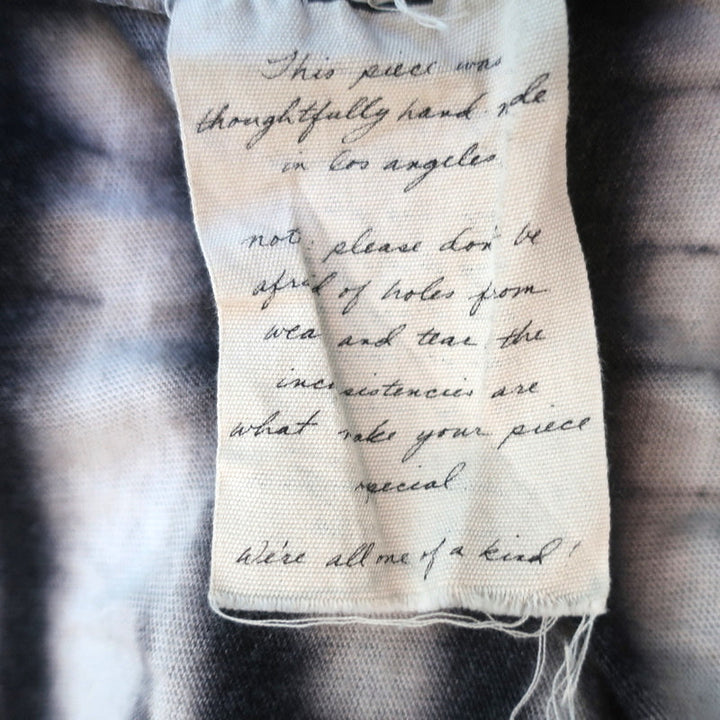 This piece was
thoughtfully hand made
in los angeles
note: please don't be
afraid of holes from
wear and tear the
inconsistencies are
what make your piece
special
We're all one of a kind!